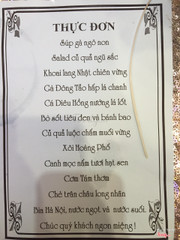 THỰC ĐƠN
Súp gà ngô non
Salad củ quả ngũ sắc
Khoai lang Nhật chiên vừng
Gà Đông Tảo hấp lá chanh
Cá Diêu Hồng nướng lá lốt
Bò sốt tiêu đen và bánh bao
Củ quả luộc chấm muối vừng
Xôi Hoàng Phố
Canh mọc nấm tươi hạt sen
Cơm Tám thơm
Chè trân châu long nhãn
Bia Hà Nội, nước ngọt và nước suối.
Chúc quý khách ngon miệng !